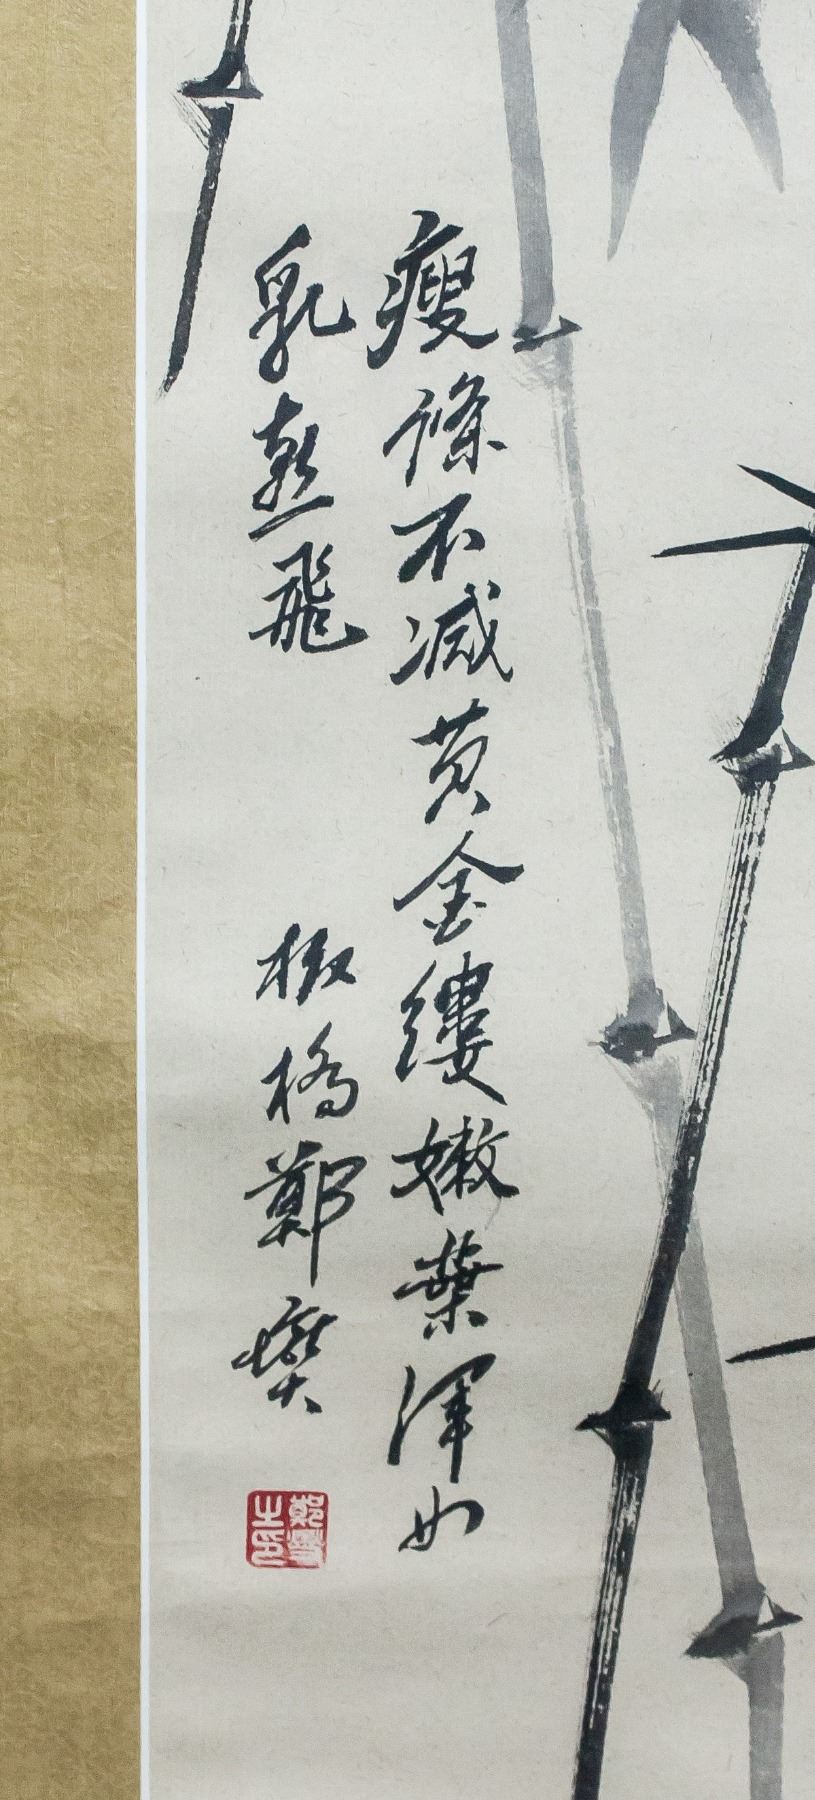 瘦條不減黄金縷嫩葉渾如
乳燕飛
板橋鄭燮
鄭燮之印